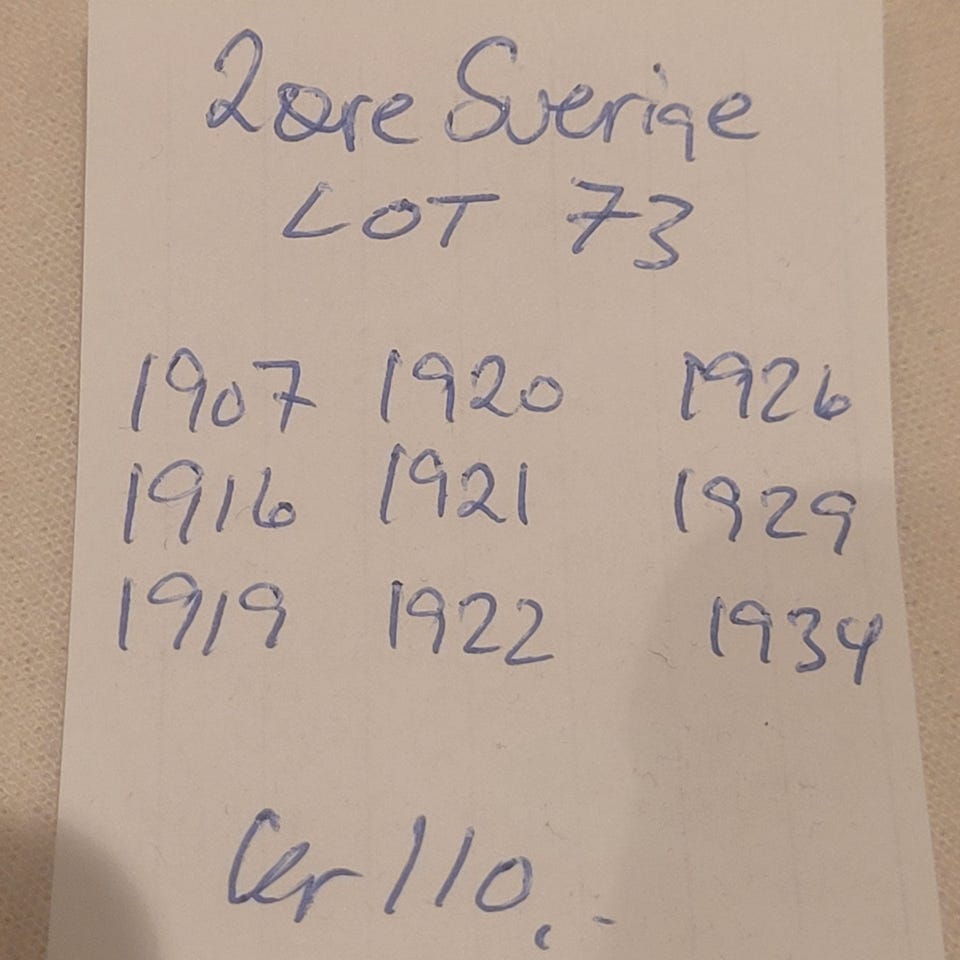 2 øre Sverige
LOT 73
1907 1920 1926
1916 1921 1929
1919 1922 1934
Kr 110,-